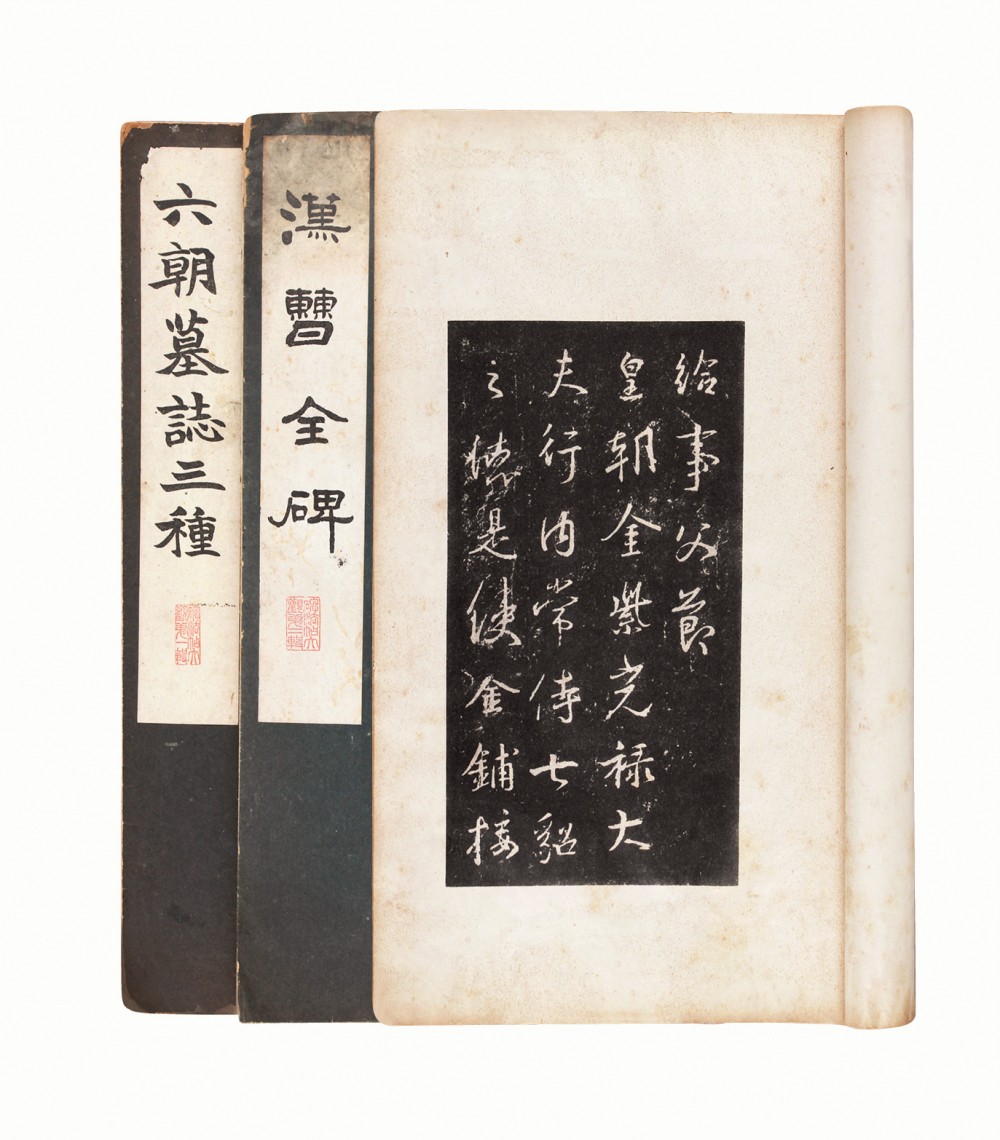 給事父節
皇朝金紫光祿大
夫行內常侍七貂
之是使金鋪接
漢曹全碑
六朝墓誌三種